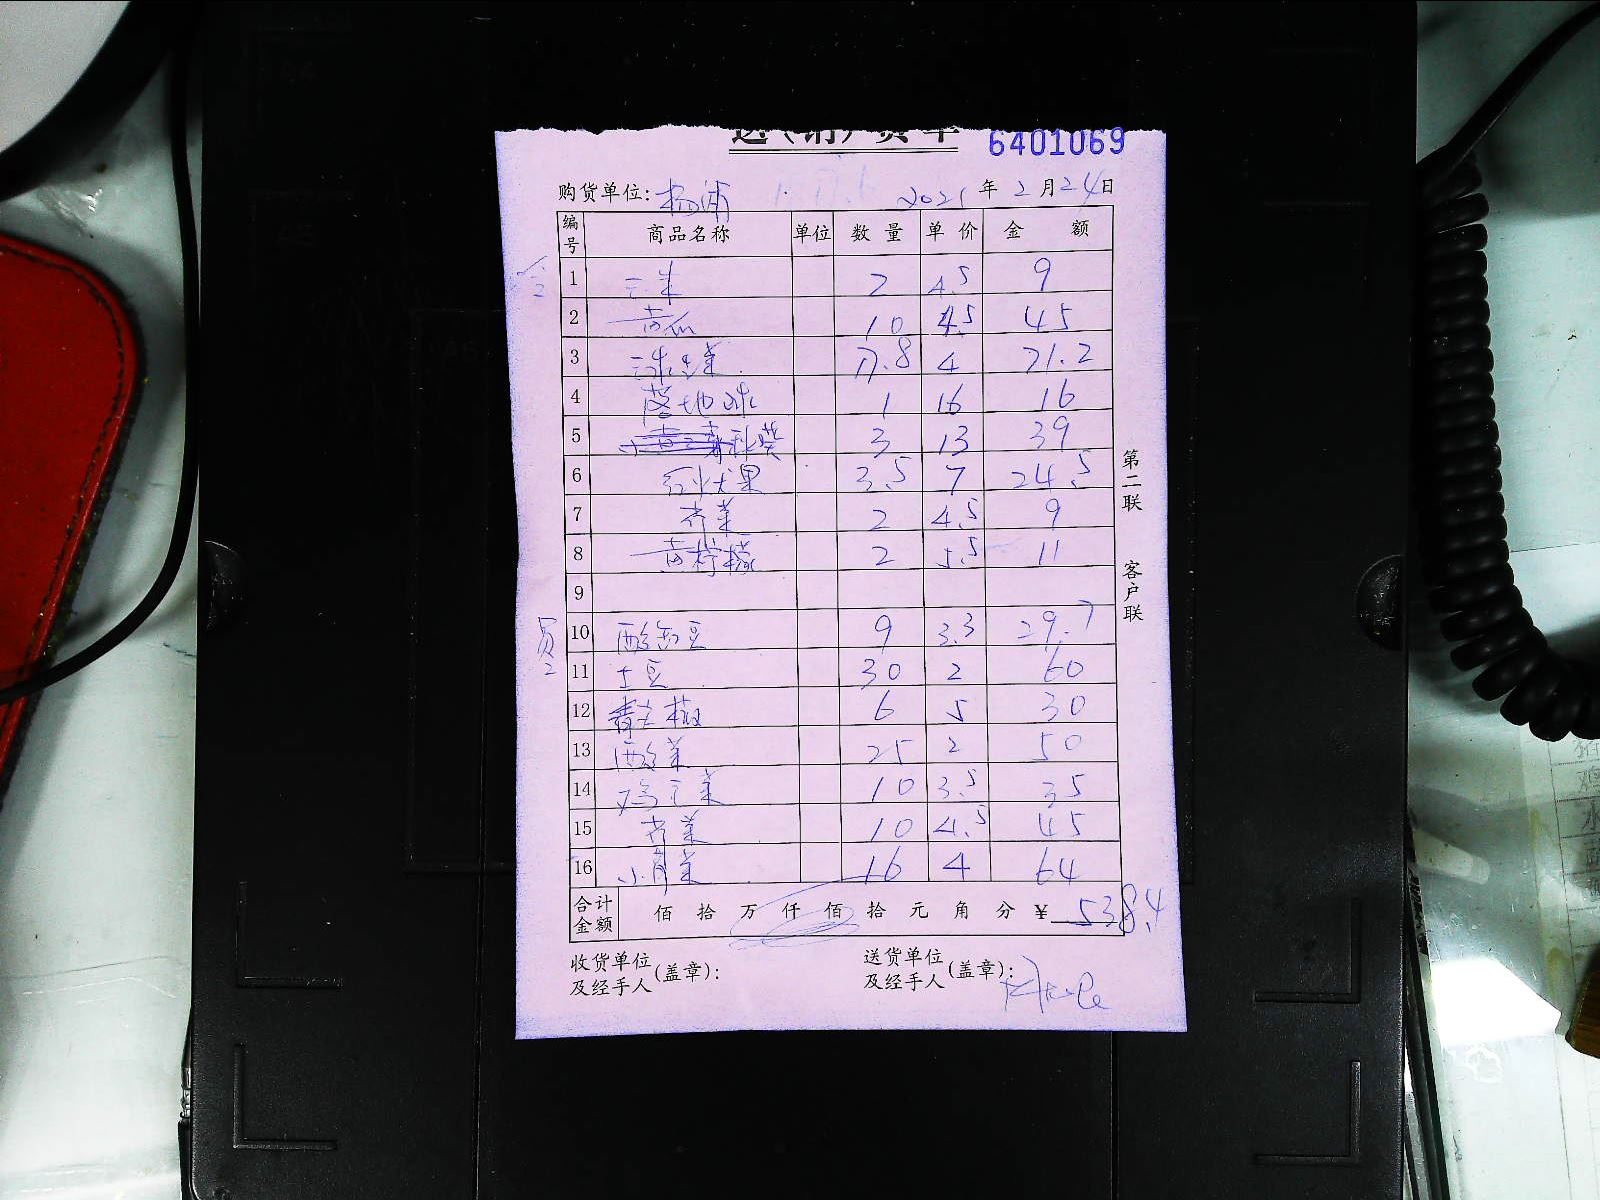 送(销)货单 6401069
购货单位: 杨浦 2021 年 2 月 24 日
编号 商品名称 单位 数量 单价 金额
1 2 4.5 9
2 黄瓜 10 4.5 45
3 17.8 4 71.2
4 1 16 16
5 秋葵 3 13 39
6 红火龙果 3.5 7 24.5
7 芹菜 2 4.5 9
8 黄柠檬 2 5.5 11
9
10 酸豇豆 9 3.3 29.7
11 土豆 30 2 60
12 青尖椒 6 5 30
13 酸菜 25 2 50
14 鸡毛菜 10 3.5 35
15 芹菜 10 4.5 45
16 小青菜 16 4 64
合计金额 佰 拾 万 仟 佰 拾 元 角 分 ¥ 538.4
收货单位及经手人(盖章): 送货单位及经手人(盖章):
第二联 客户联
员2